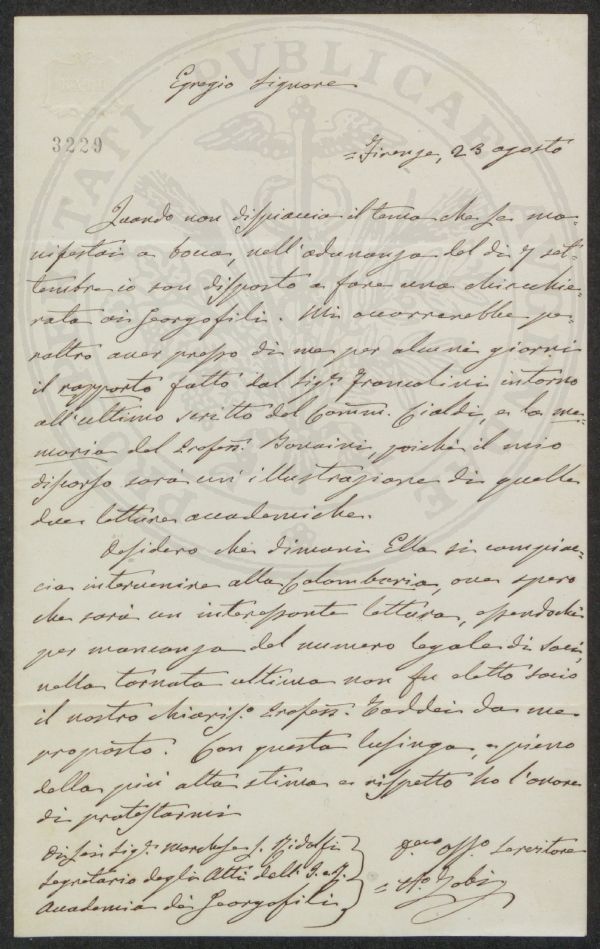 Egregio Signore
3229
= Firenze, 23 agosto
Quando non dispiaccia il tema che Le ma-
nifestai a bocca nell'adunanza del dì 7 set-
tembre io son disposto a fare una chiacchie-
rata ai Georgofili. Mi occorrerebbe pe-
raltro aver presso di me per alcuni giorni
il rapporto fatto dal Sigr. Francolini intorno
all'ultimo scritto del Comm. Cialdi, e la me-
moria del Profess. Bonaini, poichè il mio
discorso sarà un'illustrazione di quelle
due letture accademiche.
Desidero che dimani Ella si compiac-
cia intervenire alla Colombaria, ove spero
che sarà un interessante lettura, essendochè
per mancanza del numero legale di soci,
nella tornata ultima non fu eletto socio
il nostro chiariss.o Profess. Taddei da me
proposto. Con questa lusinga, e pieno
della più alta stima e rispetto ho l'onore
di protestarmi
Sigr. Marchese L. Ridolfi
Segretario degli Atti dell' I. e R.
Accademia dei Georgofili
Servitore
Zobi
PROSPERITATI PVBLICAE AVGENDAE